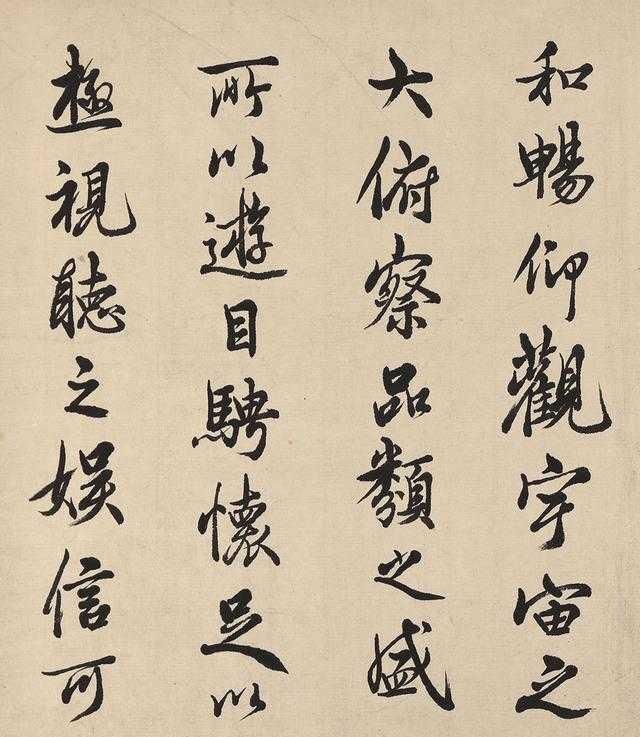 和暢仰觀宇宙之
大俯察品類之盛
所以遊目騁懷足以
極視聽之娛信可